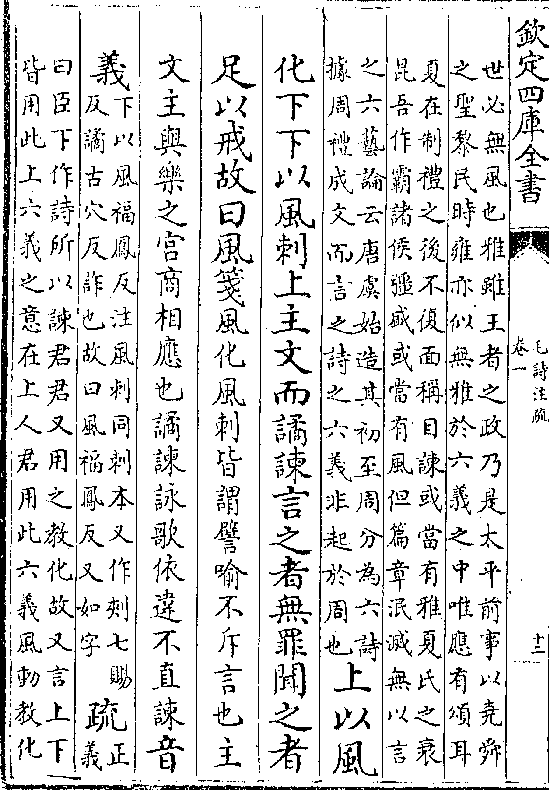 欽定四庫全書
毛詩注疏
卷一
十三
世必無風也雅雖王者之政乃是太平前事以堯舜
之聖黎民時雍亦似無雅於六義之中唯應有頌耳
夏在制禮之後不復面稱目諫或當有雅夏氏之衰
昆吾作霸諸侯彊盛或當有風但篇章泯滅無以言
之六藝論云唐虞始造其初至周分為六詩
據周禮成文而言之詩之六義非起於周也
上以風
化下下以風刺上主文而譎諫言之者無罪聞之者
足以戒故曰風箋風化風刺皆謂譬喻不斥言也主
文主與樂之宮商相應也譎諫詠歌依違不直諫音
義下以風福鳳反注風刺同刺本又作刾七賜
反譎古穴反詐也故曰風福鳳反又如字
疏正
義
曰臣下作詩所以諫君君又用之教化故又言上下
皆用此上六義之意在上人君用此六義風動教化